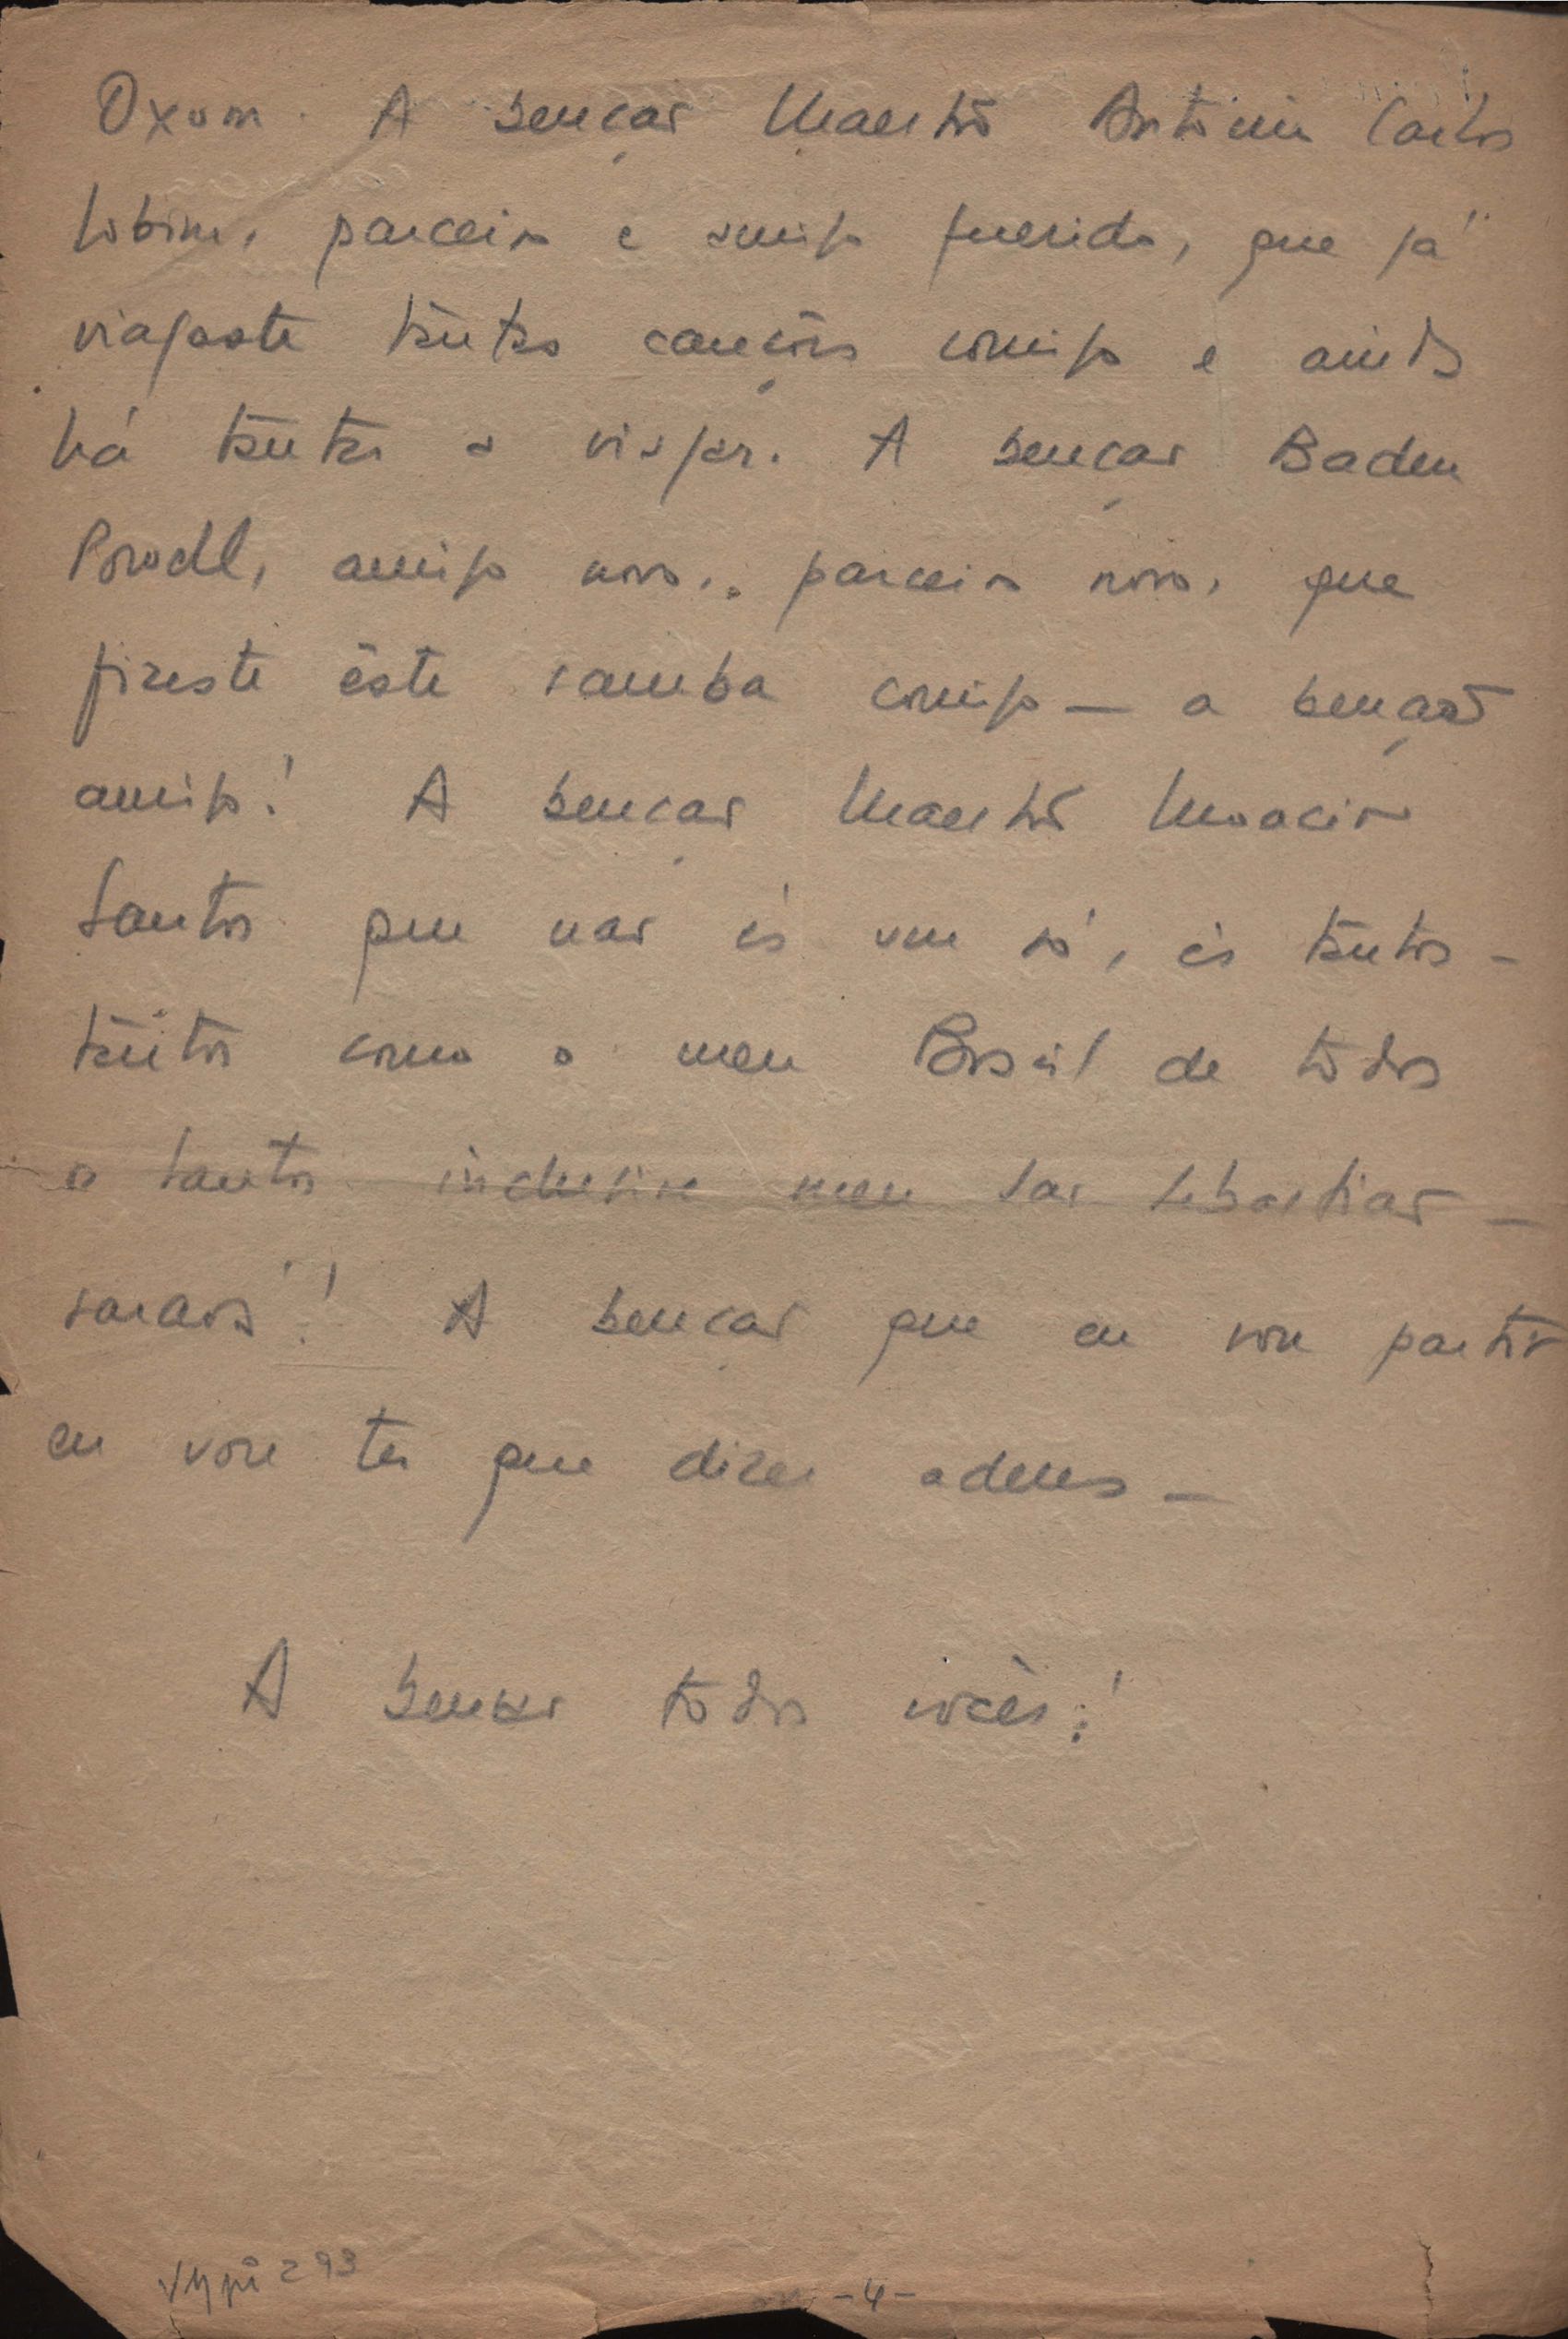 Oxum. A bençao Maestro Antônio Carlos
Jobim, parceiro e amigo querido, que já
viajaste tantas canções comigo e ainda
há tantas a viajar. A bençao Baden
Powell, amigo novo, parceiro novo, que
fizeste êste samba comigo — a benção
amigo! A bençao Maestro Moacir
Santos que nao és um só, és tantos —
tantos como o meu Brasil de todos
os santos inclusive meu Sao Sebastiao —
saravá! A bençao que eu vou partir
eu vou ter que dizer adeus —
A bençao todos vocês!
VMpi 293
- 4 -